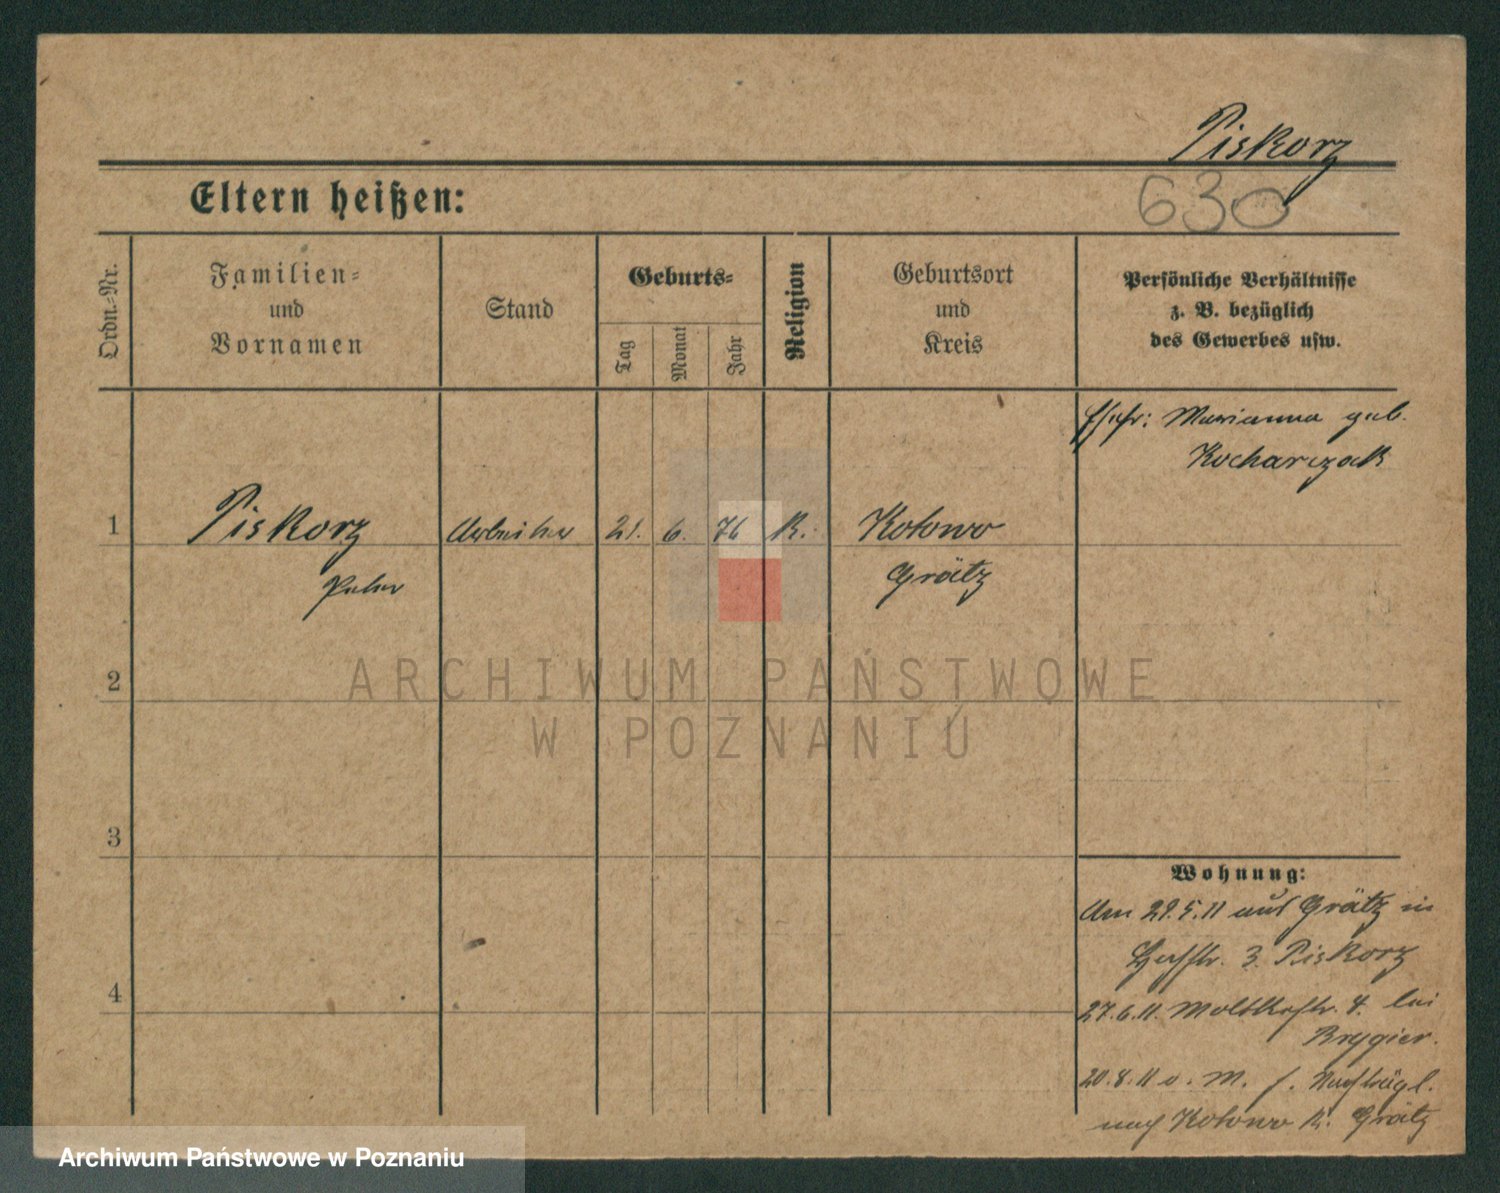 Piskorz
630
Eltern heißen:
Ordn.-Nr.
Familien-
und
Vornamen
Stand
Geburts-
Tag
Monat
Jahr
Religion
Geburtsort
und
Kreis
Persönliche Verhältnisse
z. B. bezüglich
des Gewerbes usw.
Ehefr: Marianna geb.
Kocharczak
1 Piskorz Arbeiter 21. 6. 76 K. Kotowo
Peter Grätz
2
3
4
Wohnung:
Am 29.5.11 aus Grätz in
3. Piskorz
27.6.11. Moltkestr. 8. bei
Brygier.
20.8.11 v. M. f. Nachträgl.
nach Kotowo K. Grätz
ARCHIWUM PAŃSTWOWE
W POZNANIU
Archiwum Państwowe w Poznaniu